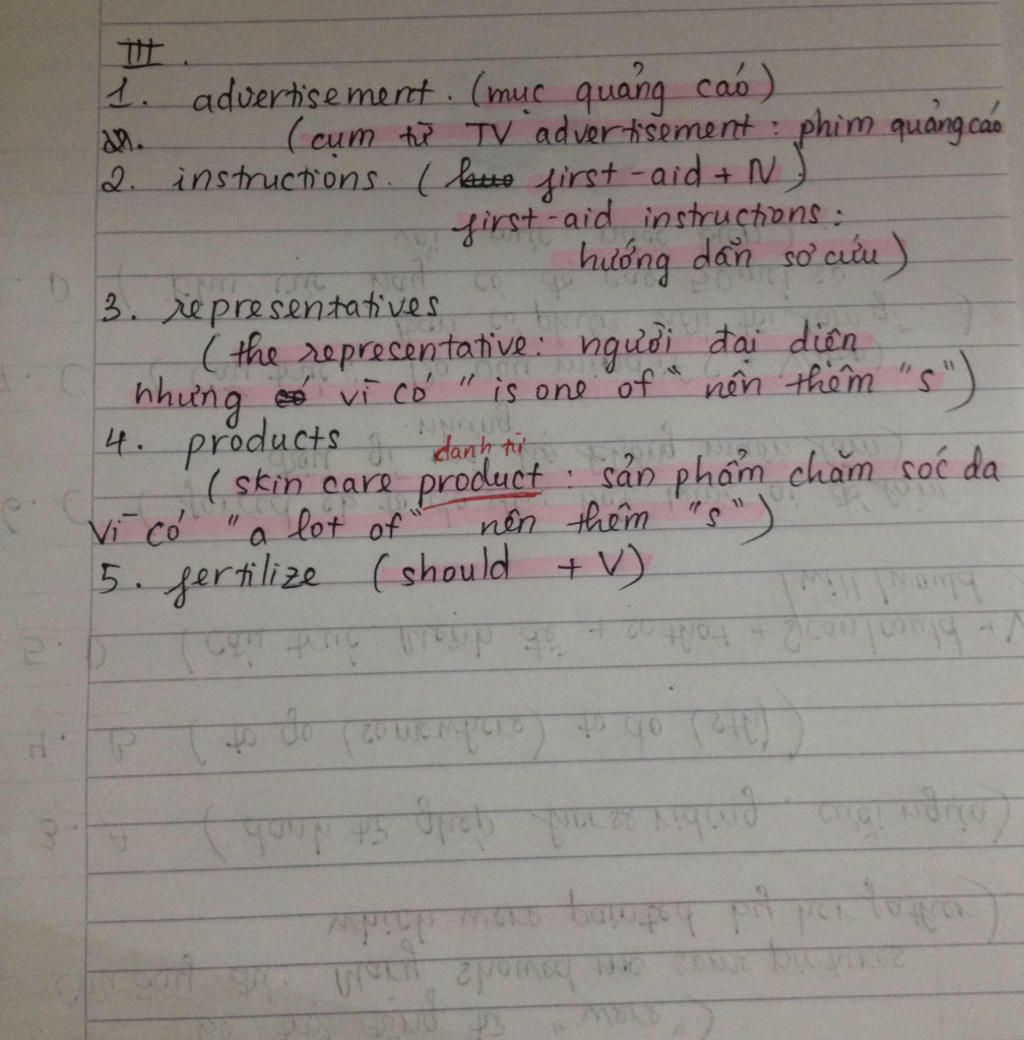 III.
1. advertisement. (mục quảng cáo)
(cụm từ TV advertisement: phim quảng cáo
2. instructions. ( first-aid + N)
first-aid instructions:
hướng dẫn sơ cứu)
3. representatives
(the representative: người đại diện
nhưng vì có "is one of" nên thêm "s")
4. products
danh từ
(skin care product: sản phẩm chăm soć da
vì có "a lot of" nên thêm "s")
5. fertilize (should + V)